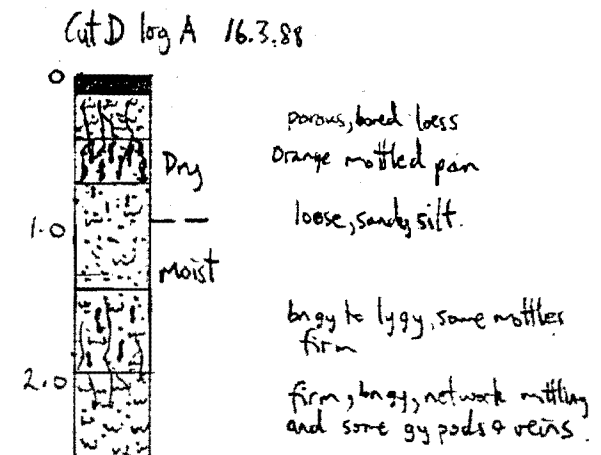 Cut D log A 16.3.88
0
porous, bored loess
Dry
Orange mottled pan
1.0
loose, sandy silt.
Moist
bngy to lygy, some mottles
firm
2.0
firm, bngy, network mttling
and some gy pods & veins.